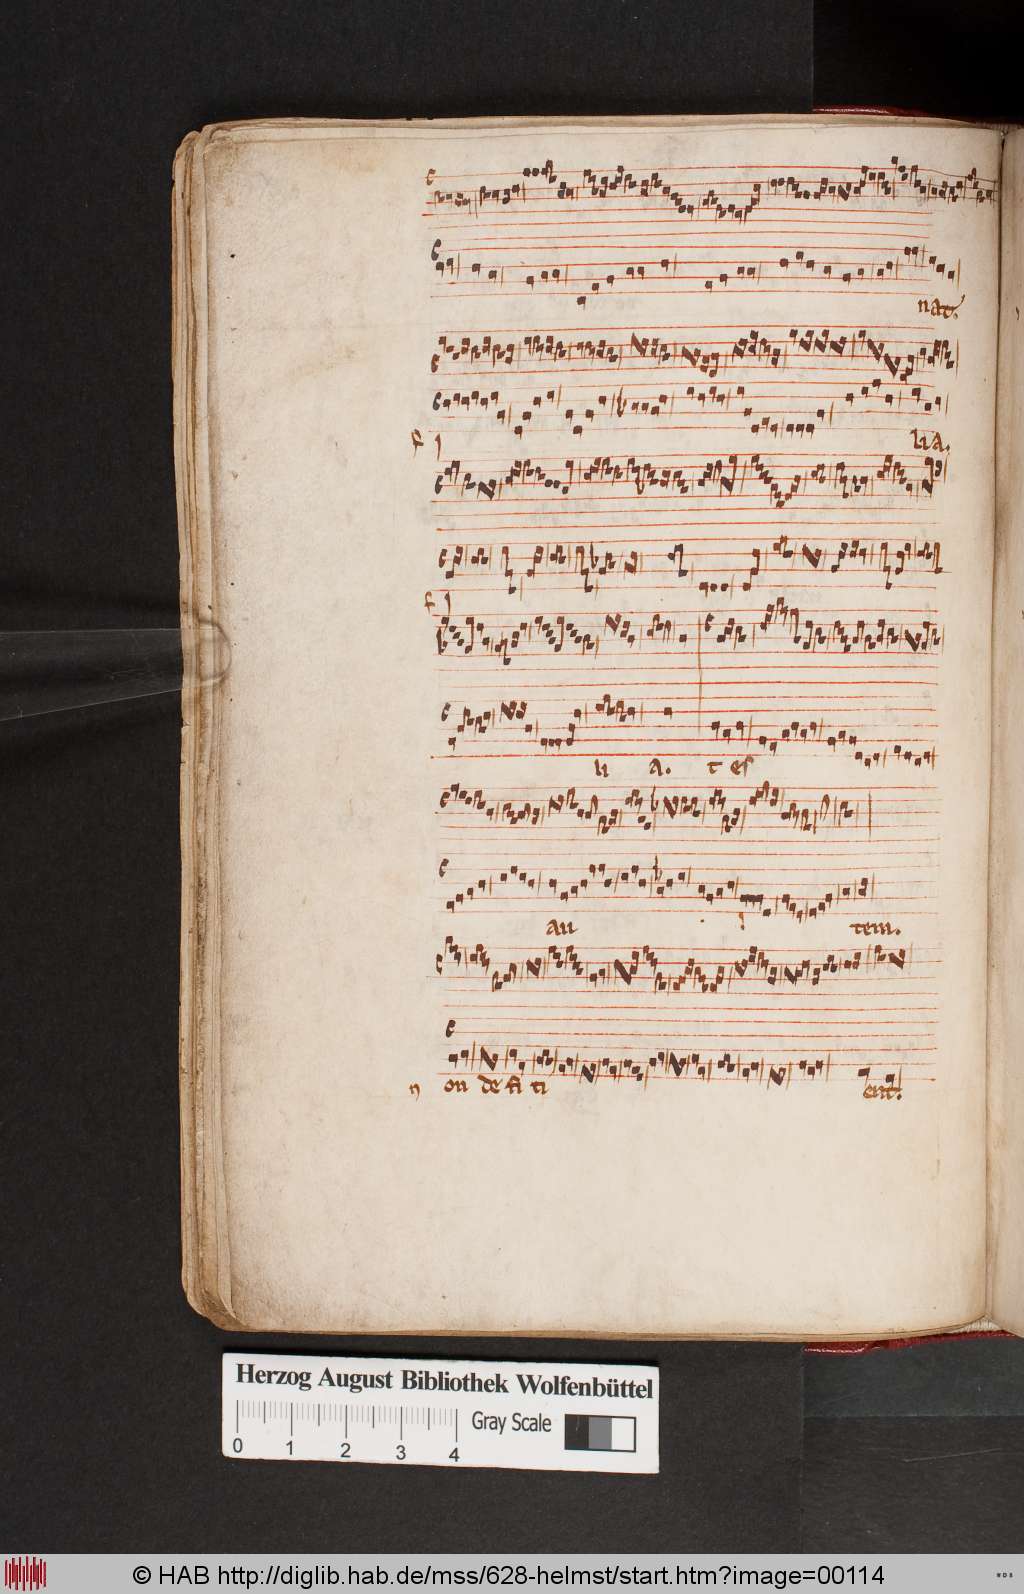 nat.
f li lia.
f li
li a. t es
au tem.
n on de fi ti ent.
Herzog August Bibliothek Wolfenbüttel
Gray Scale
0 1 2 3 4
© HAB http://diglib.hab.de/mss/628-helmst/start.htm?image=00114
WDB